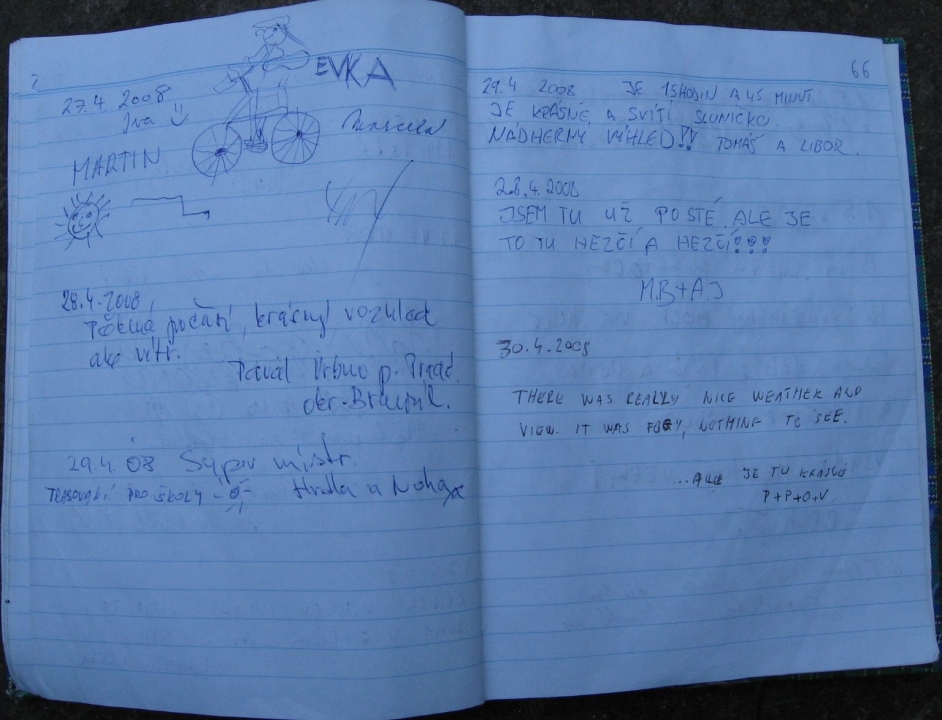 27.4. 2008
Iva
EVKA
MARTIN
28.4.2008,
Pěkná počasí, krásný
ale vítr.
Pavel Vrbno p. Praď.
okr. Bruntál.
29.4. 08
PRO ŠKOLY
a
66
29.4 2008 JE 15HODIN A 45 MINUT
JE KRÁSNĚ, A SVÍTÍ SLUNÍČKO
NÁDHERNÝ VÝHLED!! TOMÁŠ A LIBOR.
28.4.2008
JSEM TU UŽ POSTÉ ALE JE
TO TU HEZČÍ A HEZČÍ!!!
M.B+A.J
30.4.2008
THERE WAS REALLY NICE WEATHER AND
VIEW. IT WAS FOGY, NOTHING TO SEE.
...ALE JE TU KRÁSNĚ
P+P+O+V